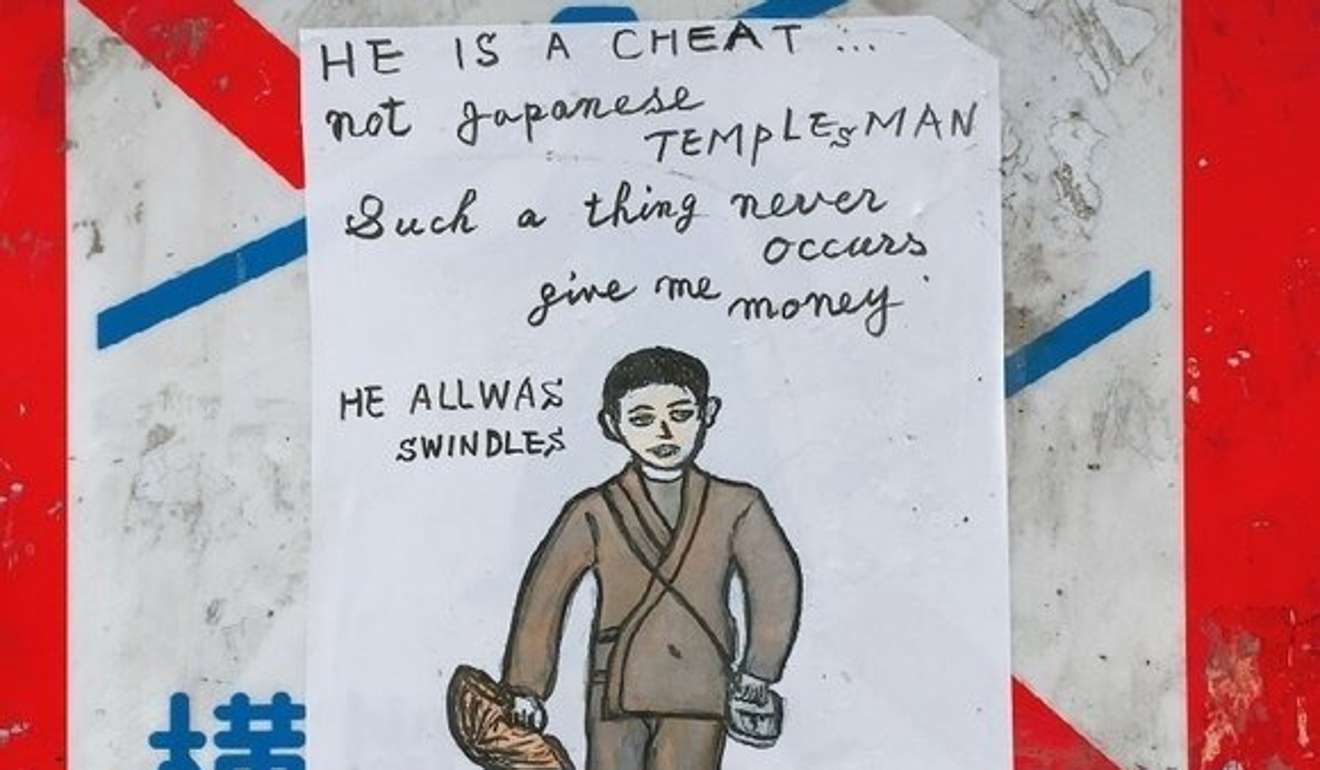 HE IS A CHEAT...
not Japanese
TEMPLEsMAN
Such a thing never
occurs
give me money
HE ALLWAS
SWINDLES
横